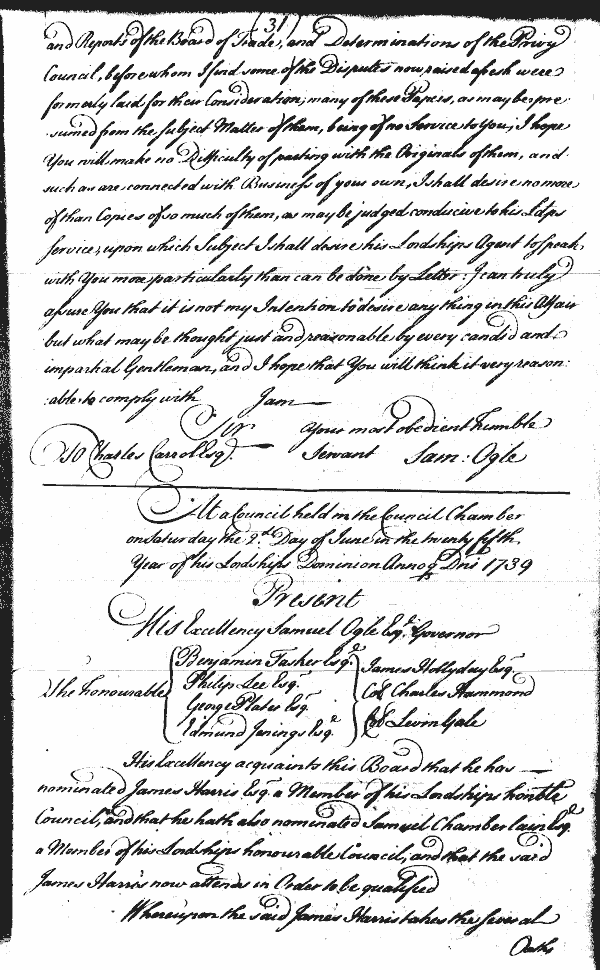 (31)
and Reports of the Board of Trade, and Determinations of the Privy
Council, before whom I find some of the Disputes now raised afresh were
formerly laid for their Consideration; many of these Papers, as may be pre-
-sumed from the Subject Matter of them, being of no Service to You; I hope
You will make no Difficulty of parting with the Originals of them, and
such as are connected with Business of your own, I shall desire no more
of than Copies of so much of them, as may be judged conducive to his Ldps
Service; upon which Subject I shall desire his Lordships Agent to speak
with You more particularly than can be done by Letter: I can truly
assure You that it is not my Intention to desire any thing in this Affair
but what may be thought just and reasonable by every candid and
impartial Gentleman, and I hope that You will think it very reason:
:able to comply with I am
Sir Your most obedient humble
To Charles Carrol Esqr. Servant Sam: Ogle
At a Council held in the Council Chamber
on Saturday the 2d Day of June in the twenty fifth
Year of his Lordships Dominion Annoq Dni 1739
Present
His Excellency Samuel Ogle Esqr. Governor
The honourable
Benjamin Tasker Esqr. James Hollyday Esqr.
Philip Lee Esqr. Col Charles Hammond
George Plater Esqr. Col Levin Gale
Edmund Jenings Esqr.
His Excellency acquaints this Board that he has
nominated James Harris Esq. a Member of his Lordships honble
Council, and that he hath also nominated Samuel Chamberlain Esqr
a Member of his Lordships honourable Council, and that the said
James Harris now attends in Order to be qualified
Whereupon the said James Harris takes the several
Oaths